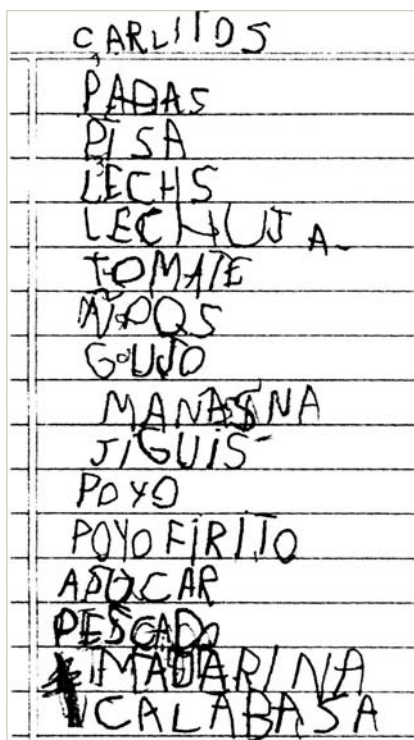 CARLITOS
PADAS
PISA
LECHS
LECHUJA-
TOMATE
ÑOQS
GOUJO
MANASNA
JIGUIS
POYO
POYOFIRITO
ASUCAR
PESCADO
MADARINA
CALABASA